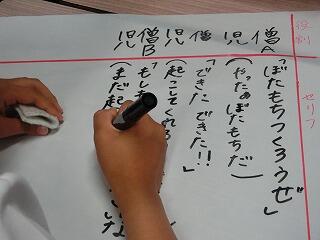 役割 セリフ
僧A 「ぼたもちつくろうぜ」
児 (やったぁぼたもちだ)
僧 「できた できた!!」
児 (起こしてくれる
僧B 「もし
児 (まだ起